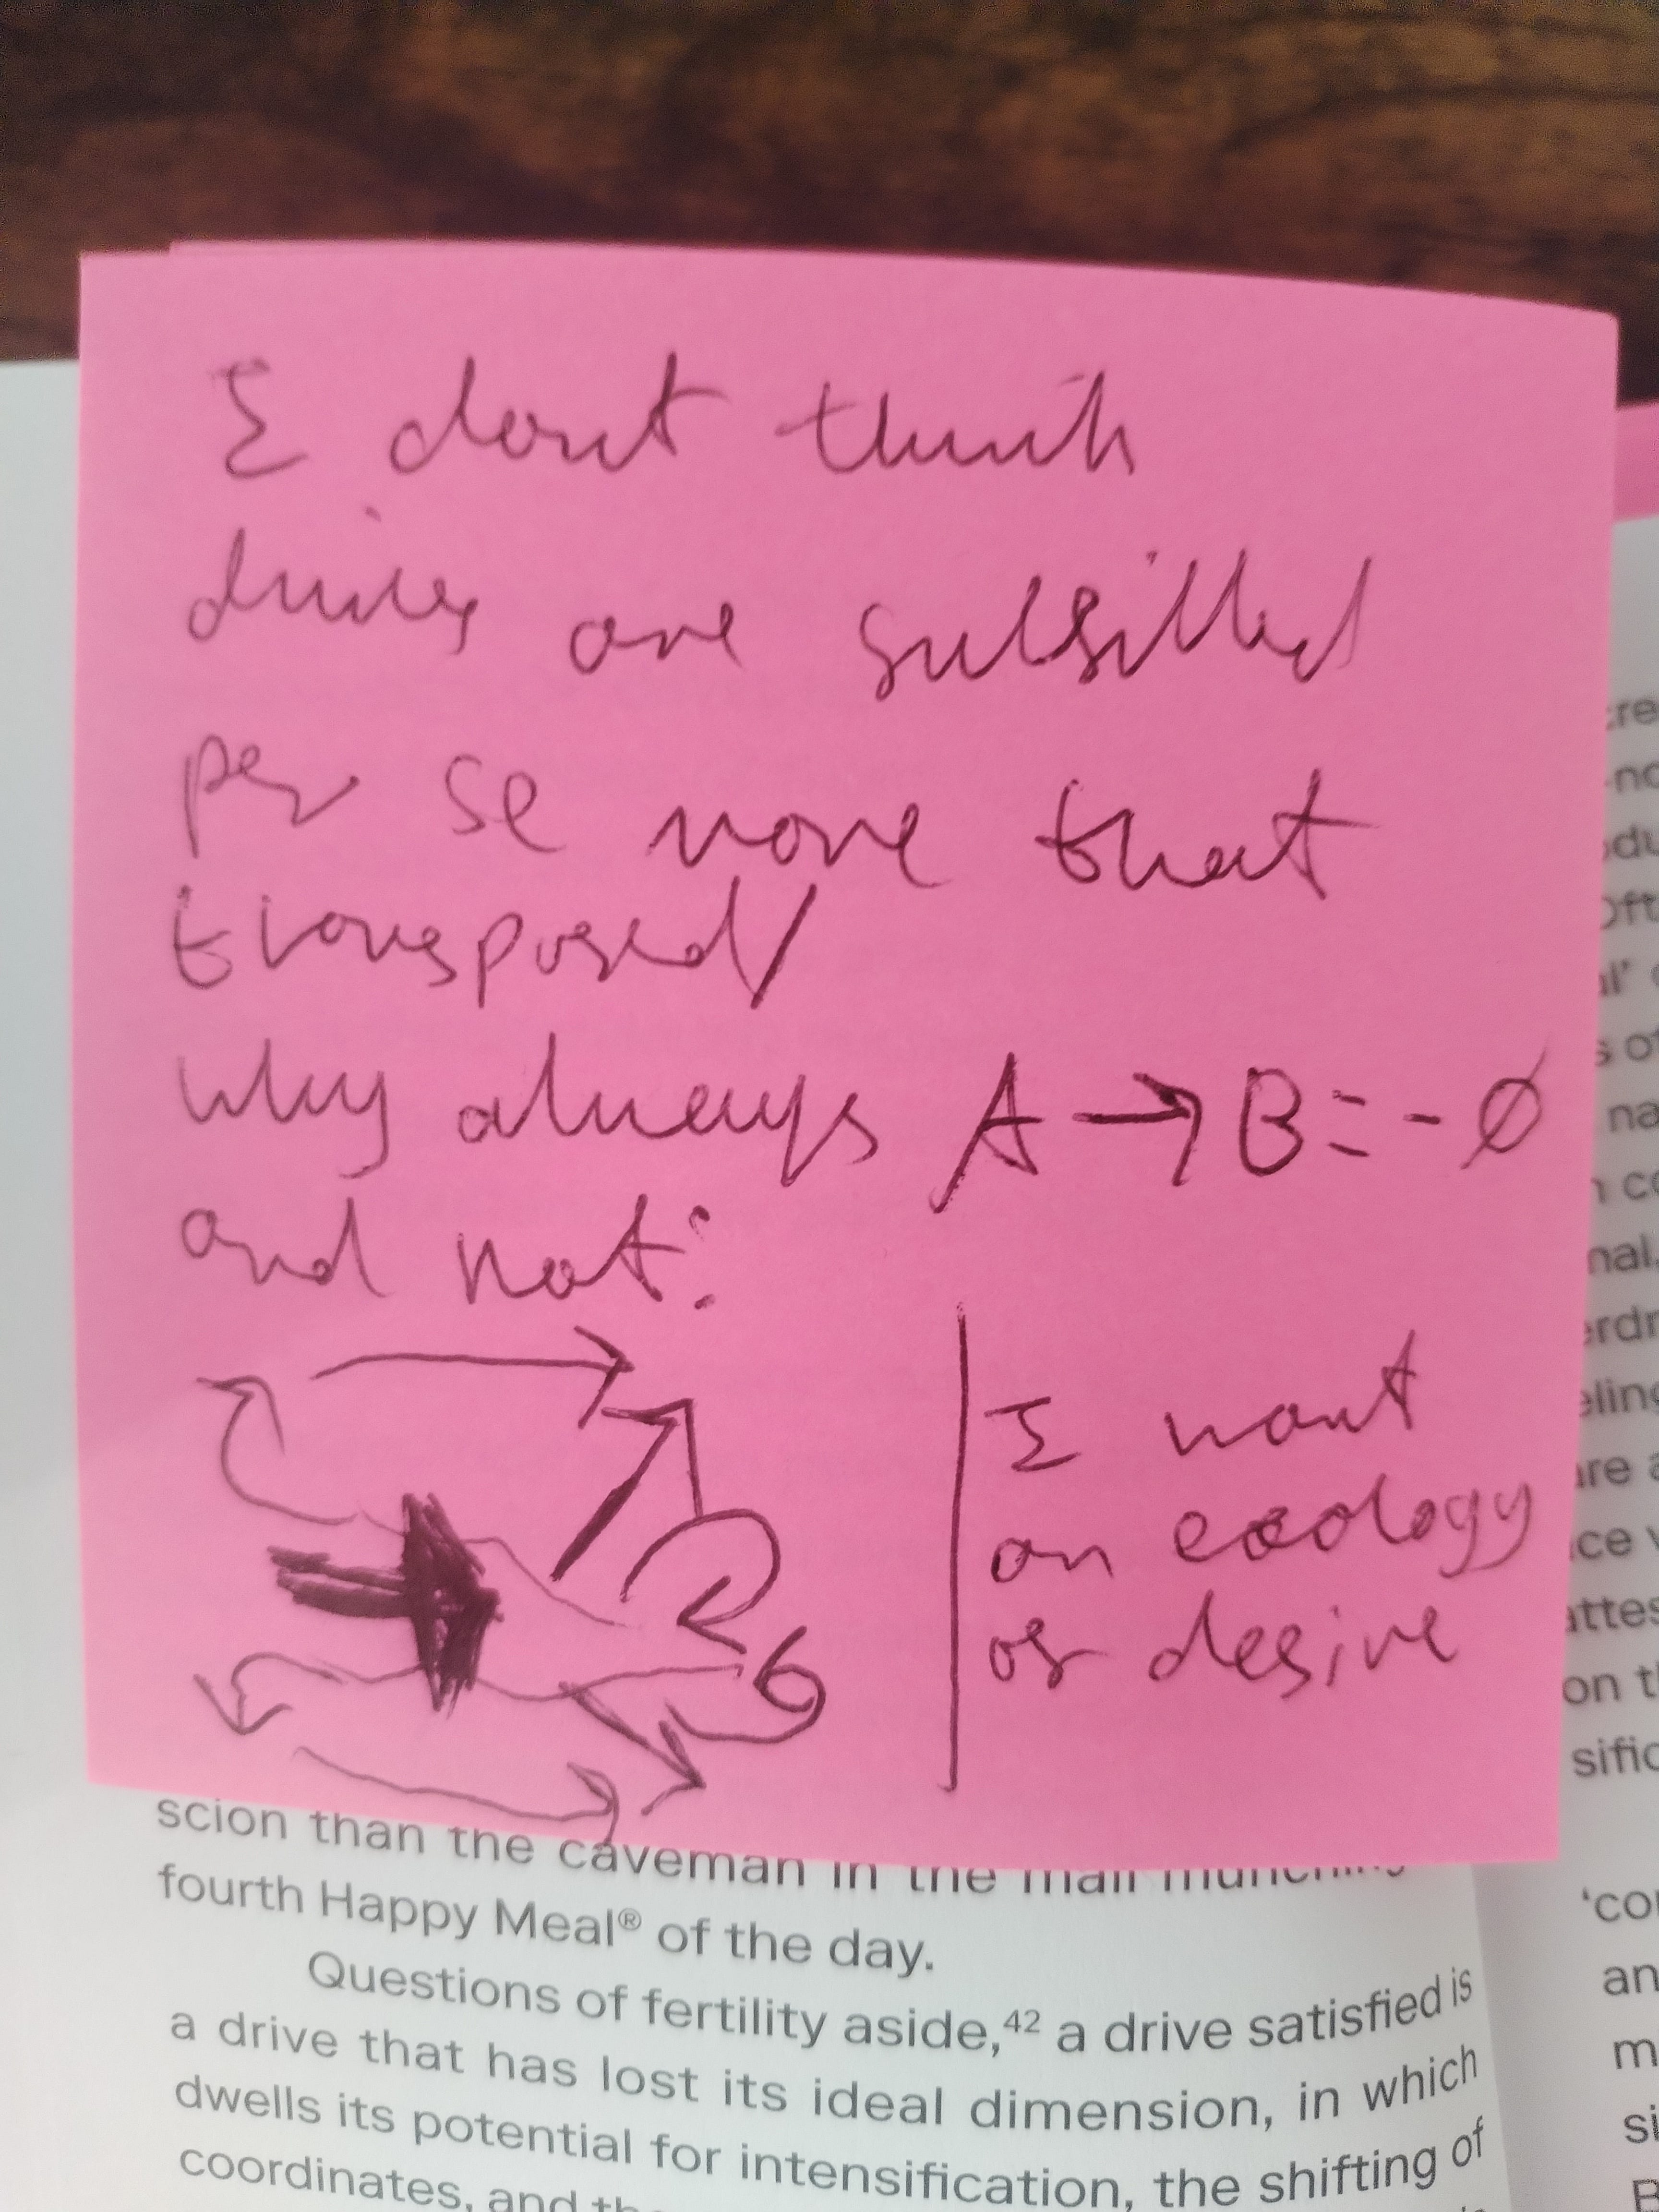 I dont think
drives are fulfilled
per se more that
transposed/
why always A → B = - Ø
and not:
I want
an ecology
of desire
scion than the caveman in the mall munching
fourth Happy Meal® of the day.
Questions of fertility aside,⁴² a drive satisfied is
a drive that has lost its ideal dimension, in which
dwells its potential for intensification, the shifting of
coordinates, and
on
'co
an